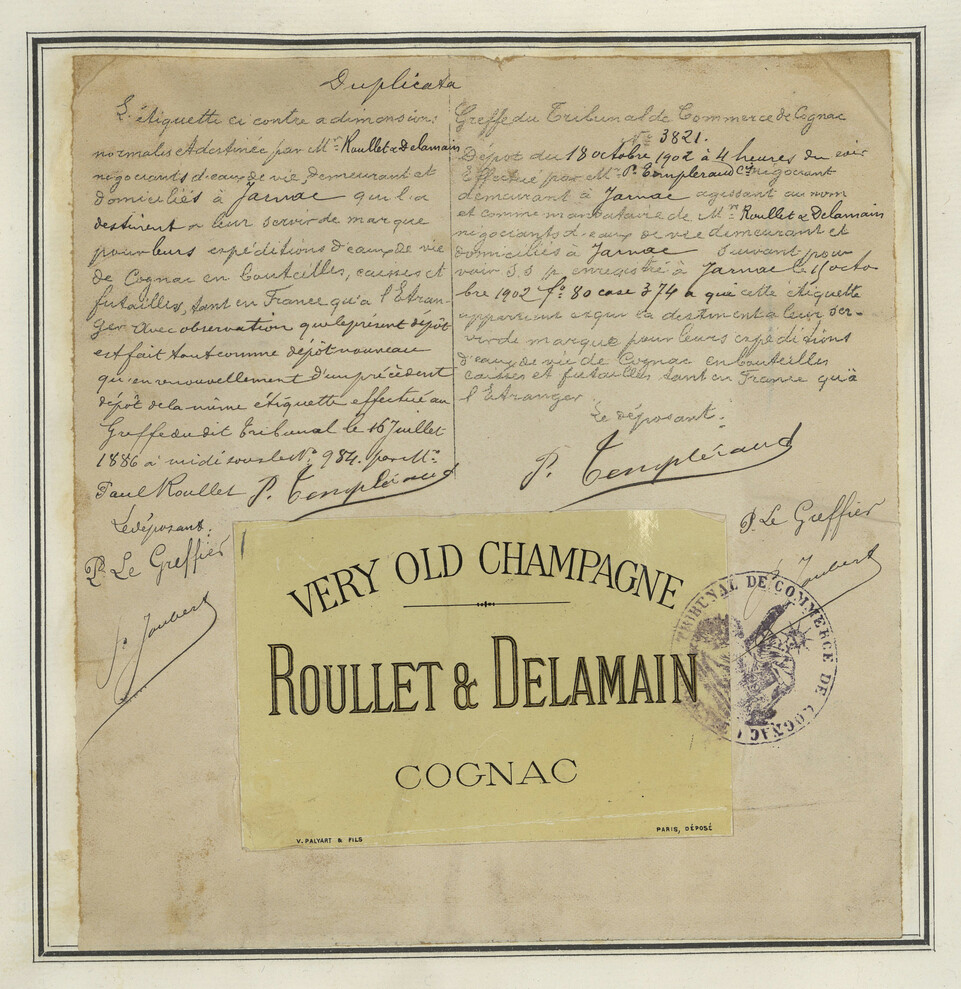 Duplicata
L'étiquette ci contre a dimensions
normales et destinée par Mrs Roullet & Delamain
négociants d'eaux de vie, demeurant et
domiciliés à Jarnac qu'il a
destinent a leur servir de marque
pour leurs expéditions d'eaux de vie
de Cognac en bouteilles, caisses et
futailles, tant en France qu'à l'Etran-
ger. Avec observation que le présent dépôt
est fait tout comme dépôt nouveau
qu'en renouvellement d'un précédent
dépôt de la même étiquette effectué au
Greffe du dit Tribunal le 16 Juillet
1886 à midi sous le No 984. par Mr
Paul Roullet P. Templéraud
Le déposant.
P. Le Greffier
P. Joubert
Greffe du Tribunal de Commerce de Cognac
No 3821.
Dépot du 18 octobre 1902 à 4 heures du soir
Effectué par Mr P. Templeraud Ct négociant
demeurant à Jarnac agissant au nom
et comme mandataire de Mrs Roullet & Delamain
négociants d'eaux de vie demeurant et
domiciliés à Jarnac suivant pou
voir S.S.p enregistré à Jarnac le octo
bre 1902 fo 80 case 374 a que cette étiquette
appartient et qu'ils destinent a leur ser-
vir de marque pour leurs expéditions
d'eaux de vie de Cognac en bouteilles
caisses et futailles tant en France qu'à
l'Etranger
Le déposant.
P. Templéraud
P. Le Greffier
P. Joubert
VERY OLD CHAMPAGNE
ROULLET & DELAMAIN
COGNAC
V. PALYART & FILS
PARIS, DÉPOSÉ
TRIBUNAL DE COMMERCE DE COGNAC